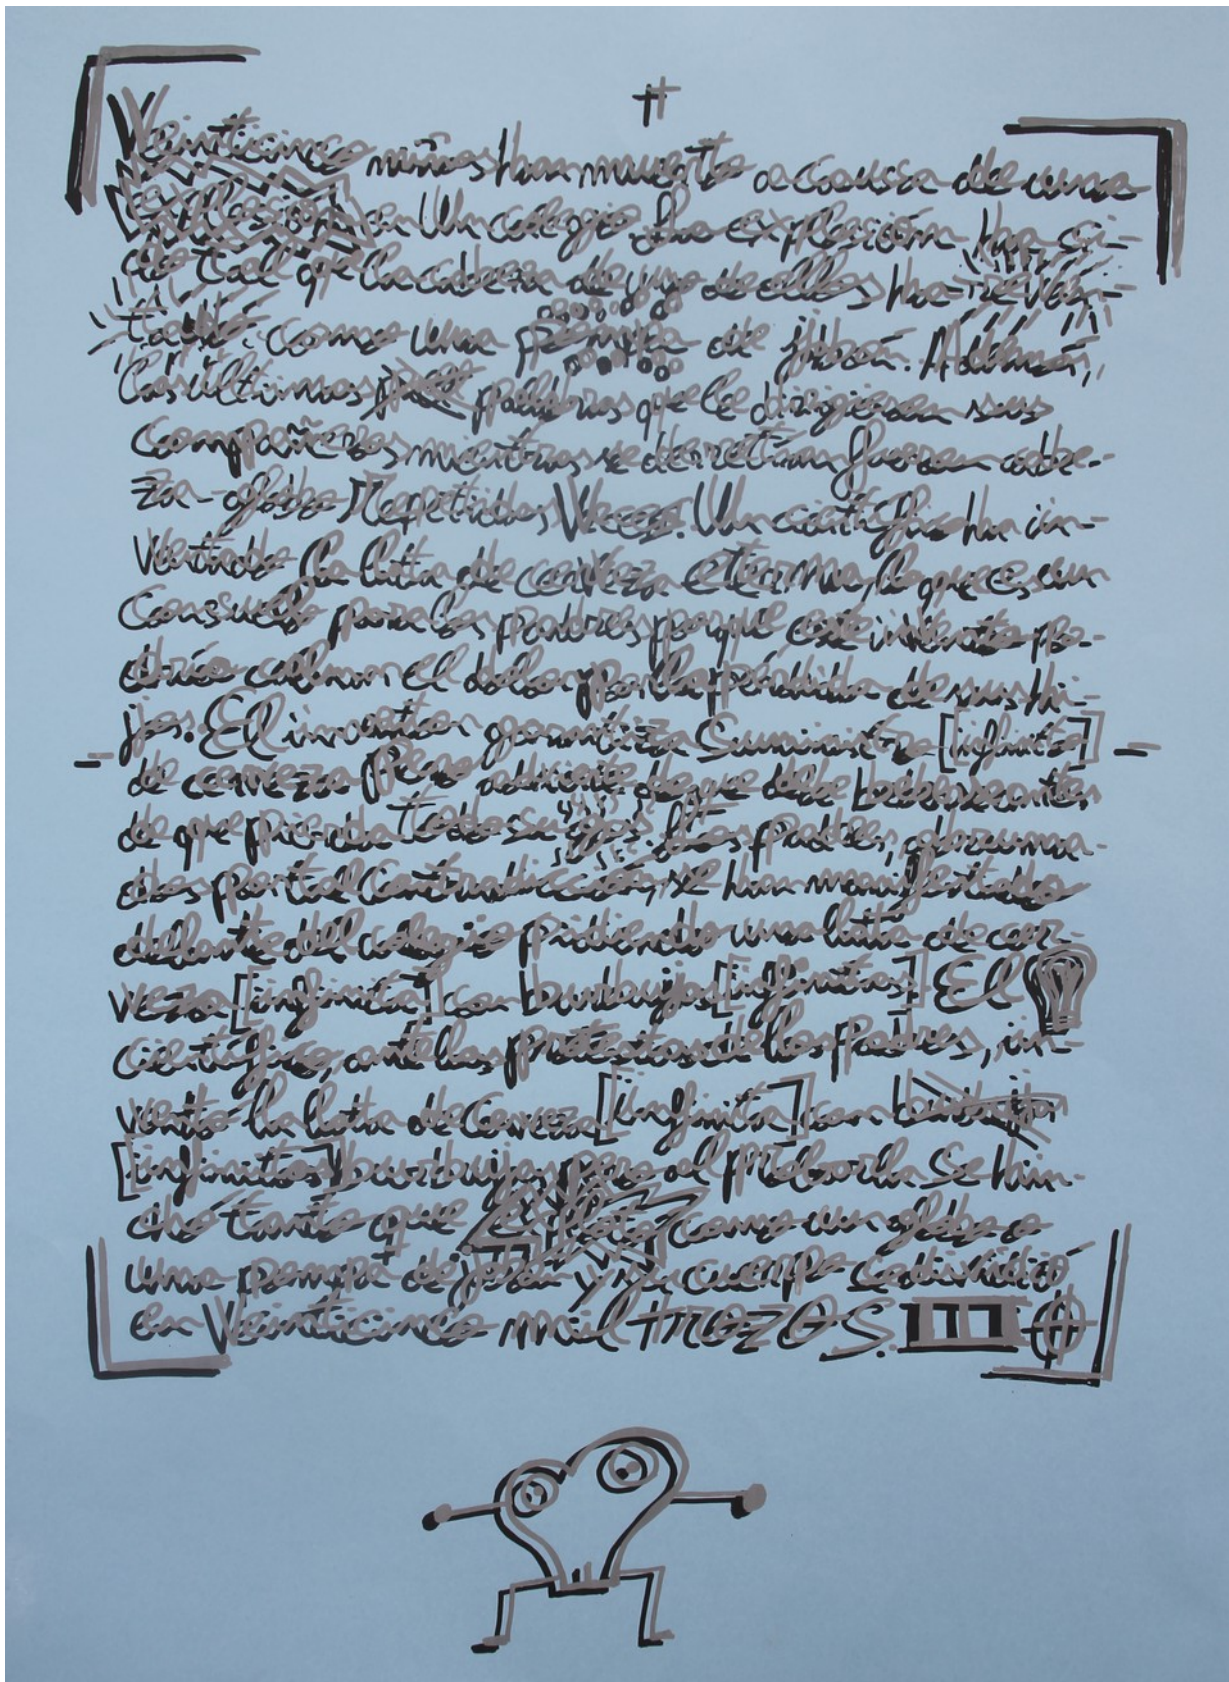 Veinticinco niños han muerto a causa de una
explosión en Un colegio. La explosión ha si-
do tal que la cabeza de uno de ellos ha reven-
tado como una pompa de jabón. Además,
las últimas palabras que le dirigieron sus
compañeros mientras se derretían fueron cabe-
za-globo repetidas Veces. Un científico ha in-
ventado la lata de cerveza eterna, lo que es un
Consuelo para los padres porque este invento po-
dría calmar el dolor por la pérdida de sus hi-
jos. El inventor garantiza Suministro [infinito]
de cerveza Pero advierte de que debe beberse antes
de que pierda todo su gas. Los padres, abruma-
dos por tal Contradicción, se han manifestado
delante del colegio pidiendo una lata de cer-
veza [infinita] con burbujas [infinitas] El
científico, ante las protestas de los Padres, in-
ventó la lata de Cerveza [infinita] con burbujas
[infinitas] burbujas pero al probarla Se hin-
chó tanto que explotó como un globo o
una pompa de jabón y su cuerpo se dividió
en Veinticinco mil trozos.